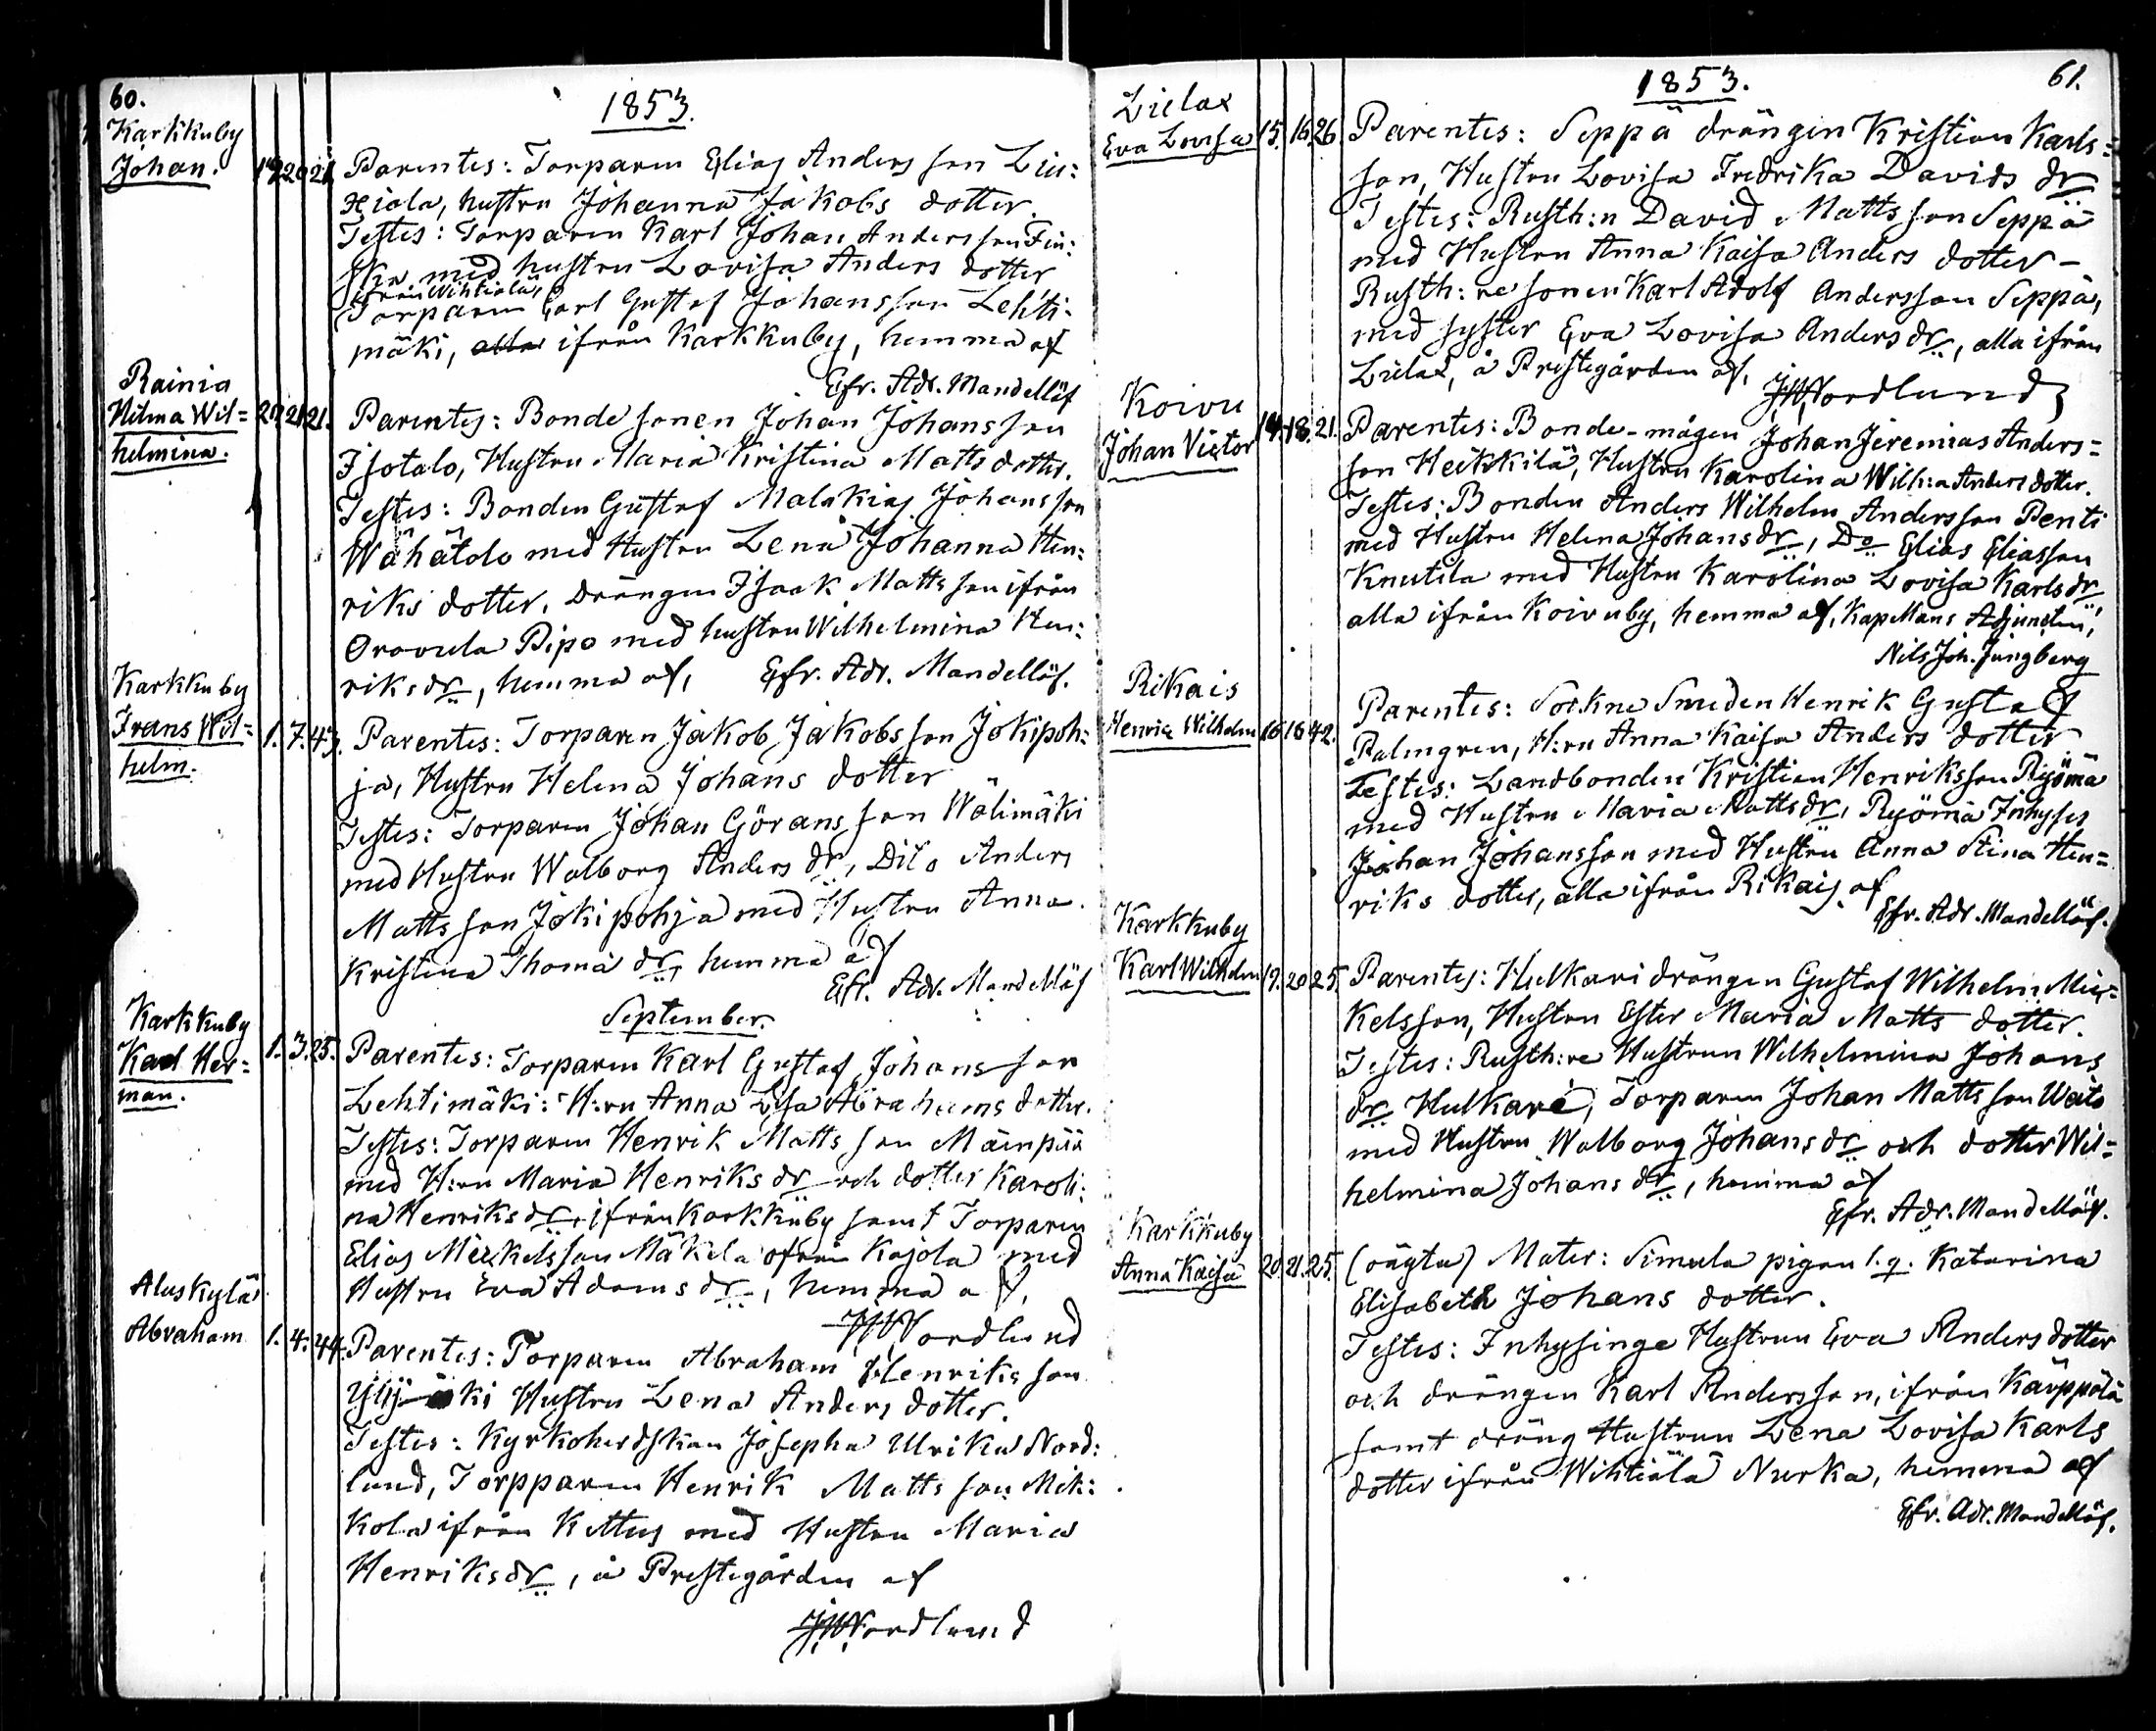 60.
1853.
Karkkuby
Johan. 19. 20. 21. Parentes: Torparen Elias Andersson Liu:
xiala, hustru Johanna Jakobs dotter.
Testes: Torparen Karl Johan Andersson Fin:
ska med hustru Lovisa Anders dotter
ifrån Wihtiälä,
Torparen Carl Gustaf Johansson Lehti-
mäki, alla ifrån Karkkuby, hemma af
Efr. Adr. Mandellöf
Rainia
Hilma Wil= 20. 21. 21. Parentes: Bonde sonen Johan Johansson
helmina.
Isotalo, Hustru Maria Kristina Matts dotter.
Testes: Bonden Gustaf Malakias Johansson
Wähätalo med Hustru Lena Johanna Hen:
riks dotter. Drängen Isaak Mattsson ifrån
Oravula Pipo med hustru Wilhelmina Hen:
riks dr, hemma af, Efr. Adr. Mandellöf.
Karkkuby
Frans Wil= 1. 7. 43. Parentes: Torparen Jakob Jakobsson Jokipoh:
helm.
ja, Hustru Helena Johans dotter
Testes: Torparen Johan Göransson Wälimäki
med Hustru Walborg Anders dr, Dito Anders
Mattsson Jokipohja med Hustru Anna
Kristina Thoma dr, hemma af
Efr. Adr. Mandellöf
September.
Karkkuby
Karl Her= 1. 3. 25. Parentes: Torparen Karl Gustaf Johansson
man.
Lehtimäki: H:ru Anna Lisa Abrahams dotter.
Testes: Torparen Henrik Mattsson Mäenpää
med H:ru Maria Henriks dr och dotter Karoli:
na Henriks dr, ifrån Karkkuby samt Torparen
Elias Mickelsson Mäkelä ifrån Kojola med
Hustru Eva Adams dr, hemma af,
JWNordlund
Aluskylä
Abraham 1. 4. 44. Parentes: Torparen Abraham Henriksson
Hustru Lena Anders dotter.
Testes: Kyrkoherdskan Josepha Ulrika Nord:
lund, Torpparen Henrik Mattsson Mik:
kola ifrån Kittus med Hustru Maria
Henriks dr, å Prestegården af
JWNordlund
1853.
61.
Lielax
Eva Lovisa 15. 16. 26. Parentes: Seppä drängen Kristian Karls=
son, Hustru Lovisa Fredrika Davids dr
Testes: Rusth:n David Mattsson Seppä
med Hustru Anna Kaisa Anders dotter -
Rusth:re sonen Karl Adolf Andersson Seppä,
med syster Eva Lovisa Anders dr, alla ifrån
Lielax, å Prestegården af,
JWNordlund
Koivu
Johan Victor 14. 18. 21. Parentes: Bonde-mågen Johan Jeremias Anders=
son Heikkilä, Hustru Karolina Wilh:a Anders dotter.
Testes: Bonden Anders Wilhelm Andersson Penti
med Hustru Helena Johans dr, Do Elias Eliasson
Knutila med Hustru Karolina Lovisa Karls dr,
alla ifrån Koivuby, hemma af, Kapellans Adjuncten,
Nils Joh. Jungberg
Rikais
Henric Wilhelm 16. 16. 42. Parentes: Sockne Smeden Henrik Gustaf
Palmgren, H:ru Anna Kaisa Anders dotter
Testes: Landbonden Kristian Henriksson Ryömä
med Hustru Maria Matts dr, Ryömä Inhyses
Johan Johansson med Hustru Anna Stina Hen=
riks dotter, alla ifrån Rikais. af
Efr. Adr. Mandellöf.
Karkkuby
Karl Wilhelm 19. 20. 25. Parentes: Hulkari drängen Gustaf Wilhelm Mic=
kelsson, Hustru Ester Maria Matts dotter.
Testes: Rusth:re Hustrun Wilhelmina Johans
dr Hulkari, Torparen Johan Mattsson Weito
med Hustru Walborg Johans dr och dotter Wil=
helmina Johans dr, hemma af
Efr. Adr. Mandellöf.
Karkkuby
Anna Kaisa 20. 21. 25. (oägta) Mater: Simula pigan l. q. Katarina
Elisabeth Johans dotter.
Testes: Inhysinge Hustrun Eva Anders dotter
och drängen Karl Andersson, ifrån Kärppälä
samt dräng Hustrun Lena Lovisa Karls
dotter ifrån Wihtiälä Nurka, hemma af
Efr. Adr. Mandellöf.